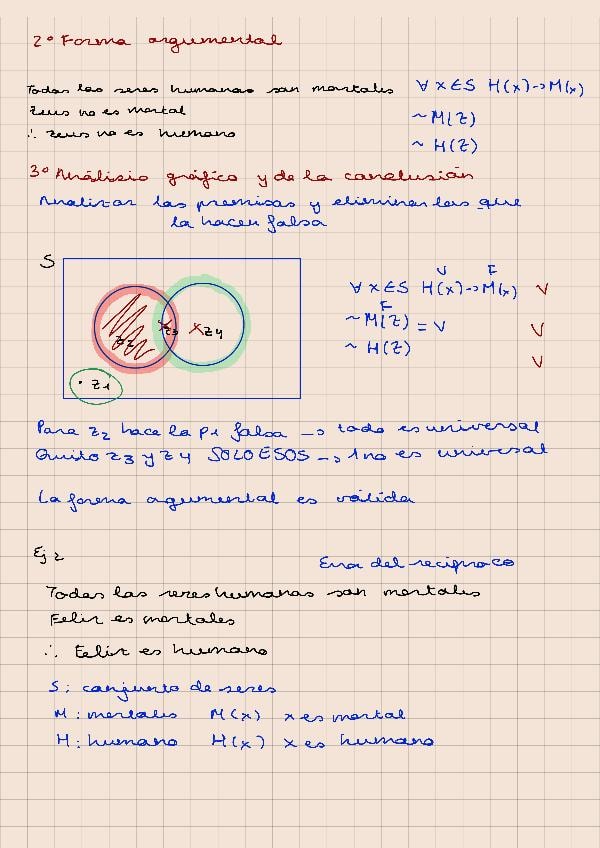 2º Forma argumental
Todos los seres humanos son mortales ∀x∈S H(x)->M(x)
Zeus no es mortal ~M(Z)
∴ Zeus no es humano ~H(Z)
3º Análisis gráfico y de la conclusión
Analizar las premisas y eliminar las que
la hacen falsa
S
V F
∀x∈S H(x)->M(x) V
F
~M(Z) = V V
~H(Z) V
z2 z3 z4
z1
Para z2 hace la p1 falsa -> todo es universal
Quito z3 y z4 SOLO ESOS -> 1 no es universal
La forma argumental es válida
Ej 2 Error del reciproco
Todos los seres humanos son mortales
Felix es mortales
∴ Felix es humano
S: conjunto de seres
M: mortales M(x) x es mortal
H: humano H(x) x es humano